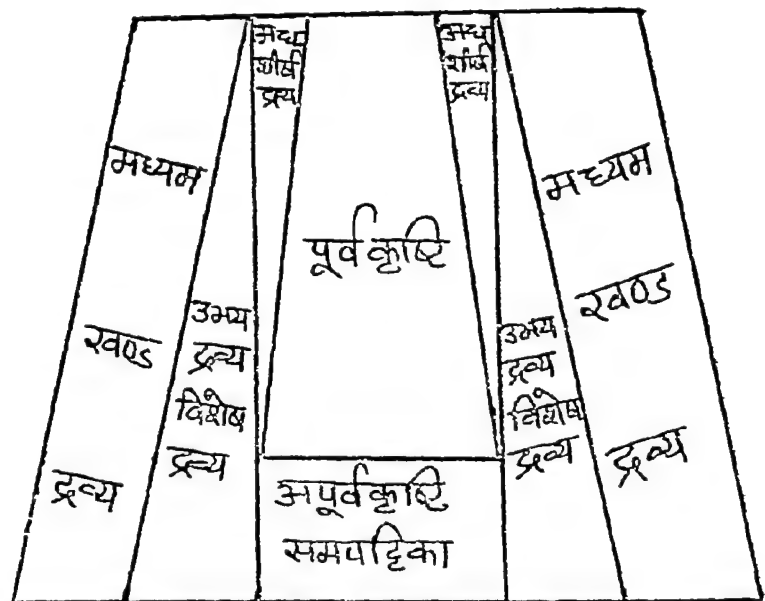 मध्यम
खण्ड
द्रव्य
उभय
द्रव्य
विशेष
द्रव्य
अध
शीर्ष
द्रव्य
पूर्व कृष्टि
अपूर्व कृष्टि
समपट्टिका
अध
शीर्ष
द्रव्य
उभय
द्रव्य
विशेष
द्रव्य
मध्यम
खण्ड
द्रव्य